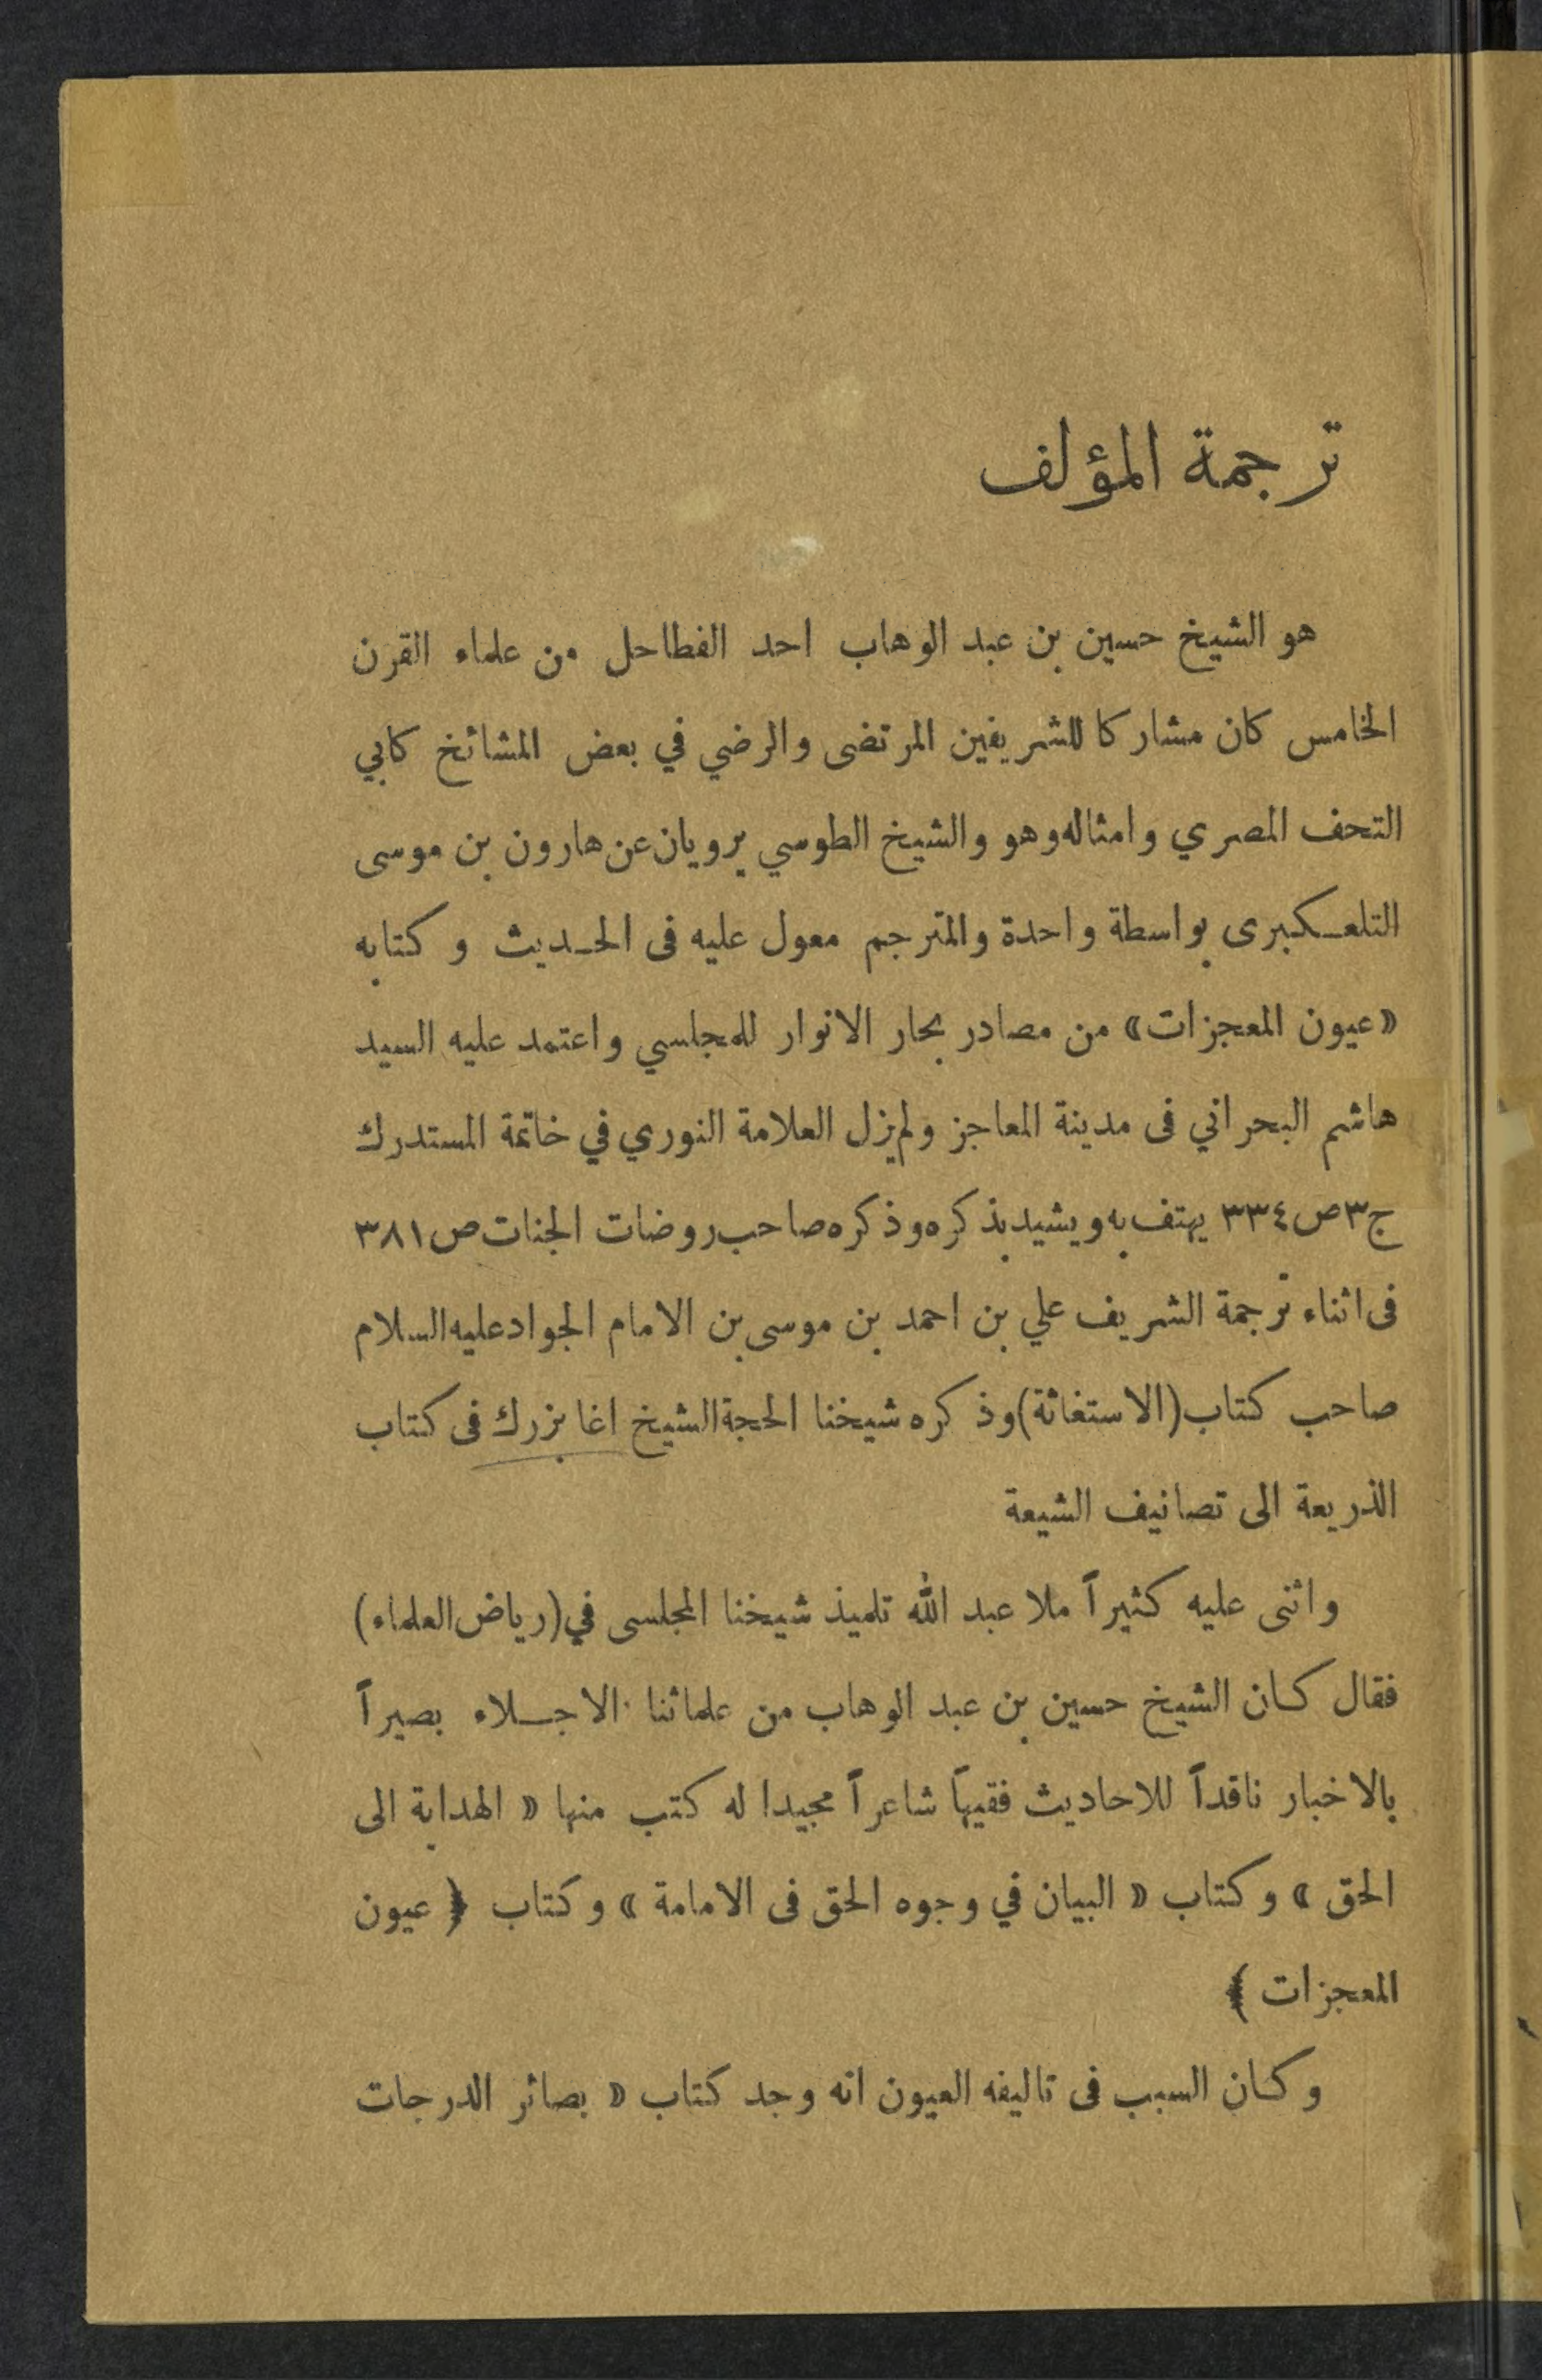 ترجمة المؤلف
هو الشيخ حسين بن عبد الوهاب احد الفطاحل من علماء القرن
الخامس كان مشاركا للشريفين المرتضى والرضي في بعض المشائخ كابي
التحف المصري وامثاله وهو والشيخ الطوسي يرويان عن هارون بن موسى
التلعكبرى بواسطة واحدة والمترجم معول عليه فى الحديث وكتابه
«عيون المعجزات» من مصادر بحار الانوار للمجلسي واعتمد عليه السيد
هاشم البحراني فى مدينة المعاجز ولم يزل العلامة النوري في خاتمة المستدرك
ج٣ ص٣٣٤ يهتف به ويشيد بذكره وذكره صاحب روضات الجنات ص٣٨١
فى اثناء ترجمة الشريف علي بن احمد بن موسى بن الامام الجواد عليه السلام
صاحب كتاب (الاستغاثة) وذكره شيخنا الحجة الشيخ اغا بزرك فى كتاب
الذريعة الى تصانيف الشيعة
واثنى عليه كثيراً ملا عبد الله تلميذ شيخنا المجلسى في (رياض العلماء)
فقال كان الشيخ حسين بن عبد الوهاب من علمائنا الاجلاء بصيراً
بالاخبار ناقداً للاحاديث فقيهاً شاعراً مجيدا له كتب منها « الهداية الى
الحق » وكتاب « البيان في وجوه الحق فى الامامة » وكتاب ﴿ عيون
المعجزات ﴾
وكان السبب فى تاليفه العيون انه وجد كتاب « بصائر الدرجات